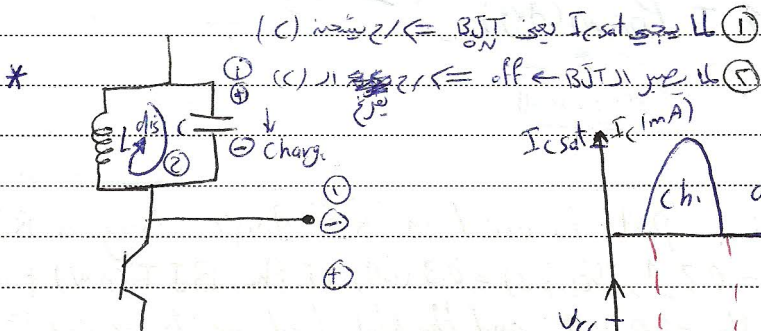 ① لما يجي Icsat يعني BJT ON => رح يشحن (C)
② لما يصير الـ BJT ← off => رح يفرغ الـ (C)
*
① ⊕
L dis C
② ⊖ ↓ Charg.
Icsat Ic(mA)
ch.
①
⊖
⊕
Vcc